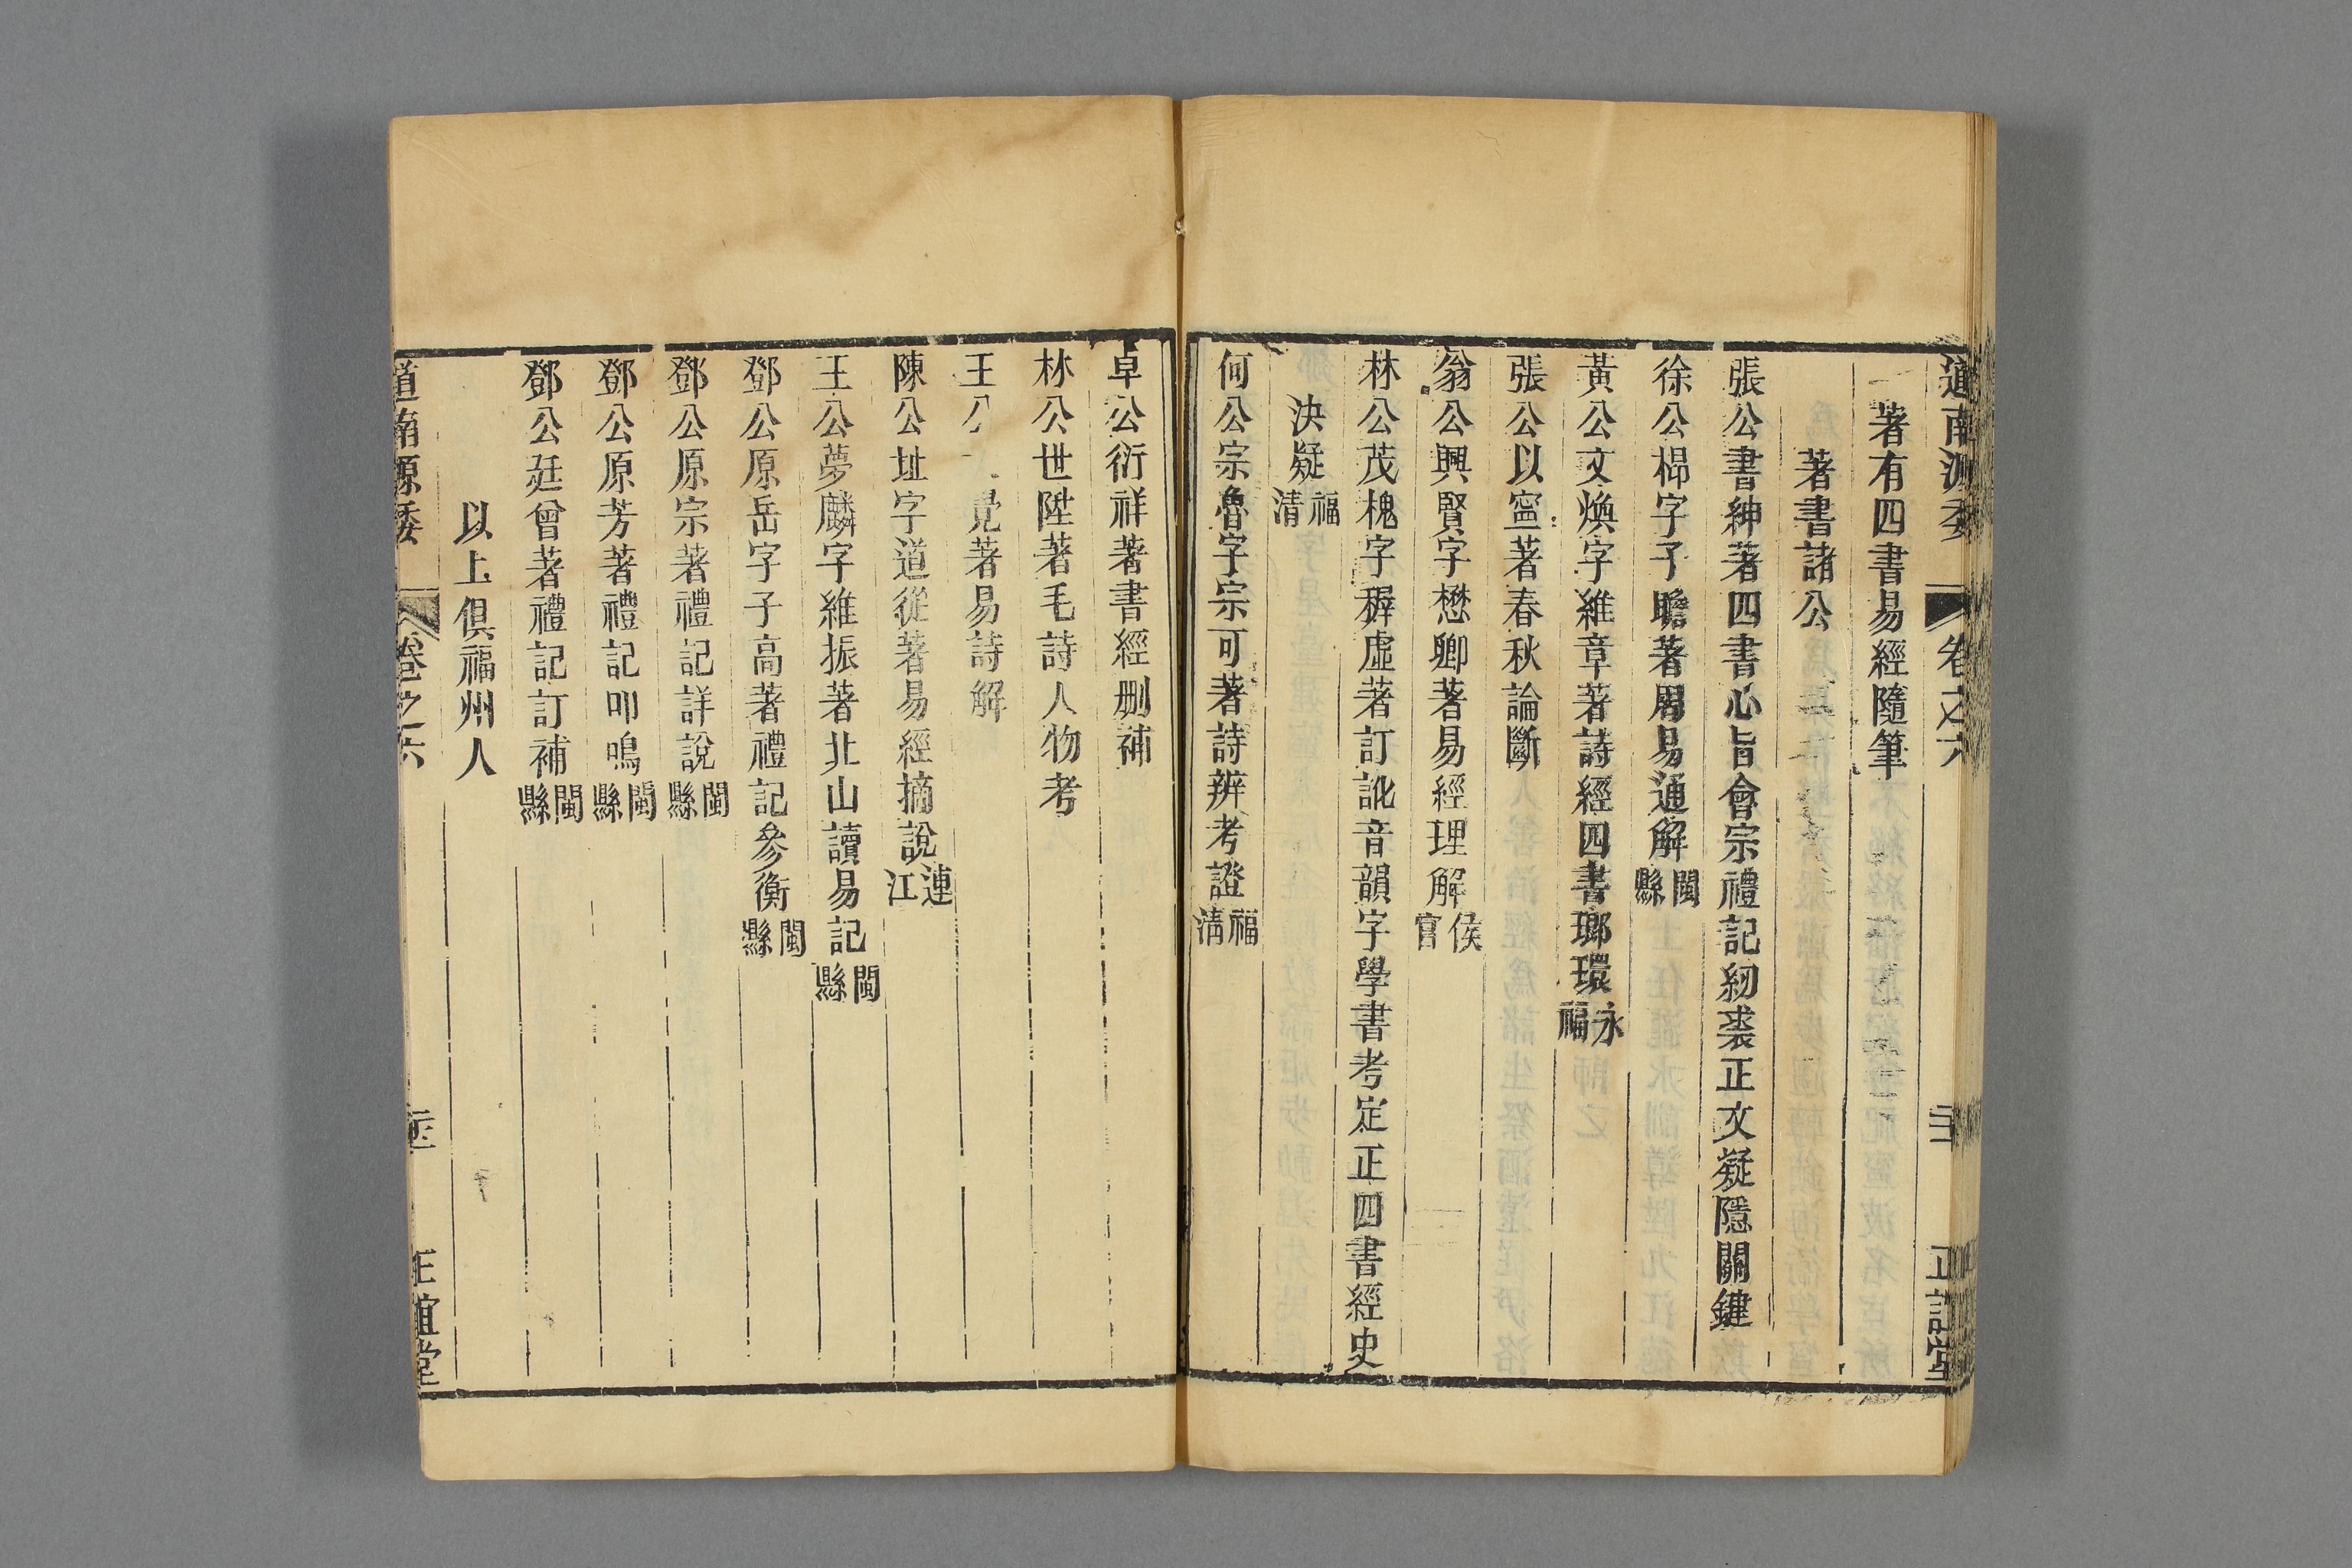 道南源委 卷之六 正誼堂
著有四書易經隨筆
著書諸公
張公書紳著四書心旨會宗禮記紉裘正文疑隱關鍵
徐公㮰字子瞻著周易通解閩縣
黃公文煥字維章著詩經四書瑯環永福
張公以寧著春秋論斷
翁公興賢字懋卿著易經理解侯官
林公茂槐字穉虛著訂訛音韻字學書考定正四書經史
決疑福清
何公宗魯字宗可著詩辨考證福清
卓公衍祥著書經刪補
林公世陞著毛詩人物考
王公覺著易詩解
陳公址字道從著易經摘說連江
王公夢麟字維振著北山讀易記閩縣
鄧公原岳字子高著禮記參衡閩縣
鄧公原宗著禮記詳說閩縣
鄧公原芳著禮記叩鳴閩縣
鄧公廷曾著禮記訂補閩縣
以上俱福州人
道南源委 卷之六 正誼堂